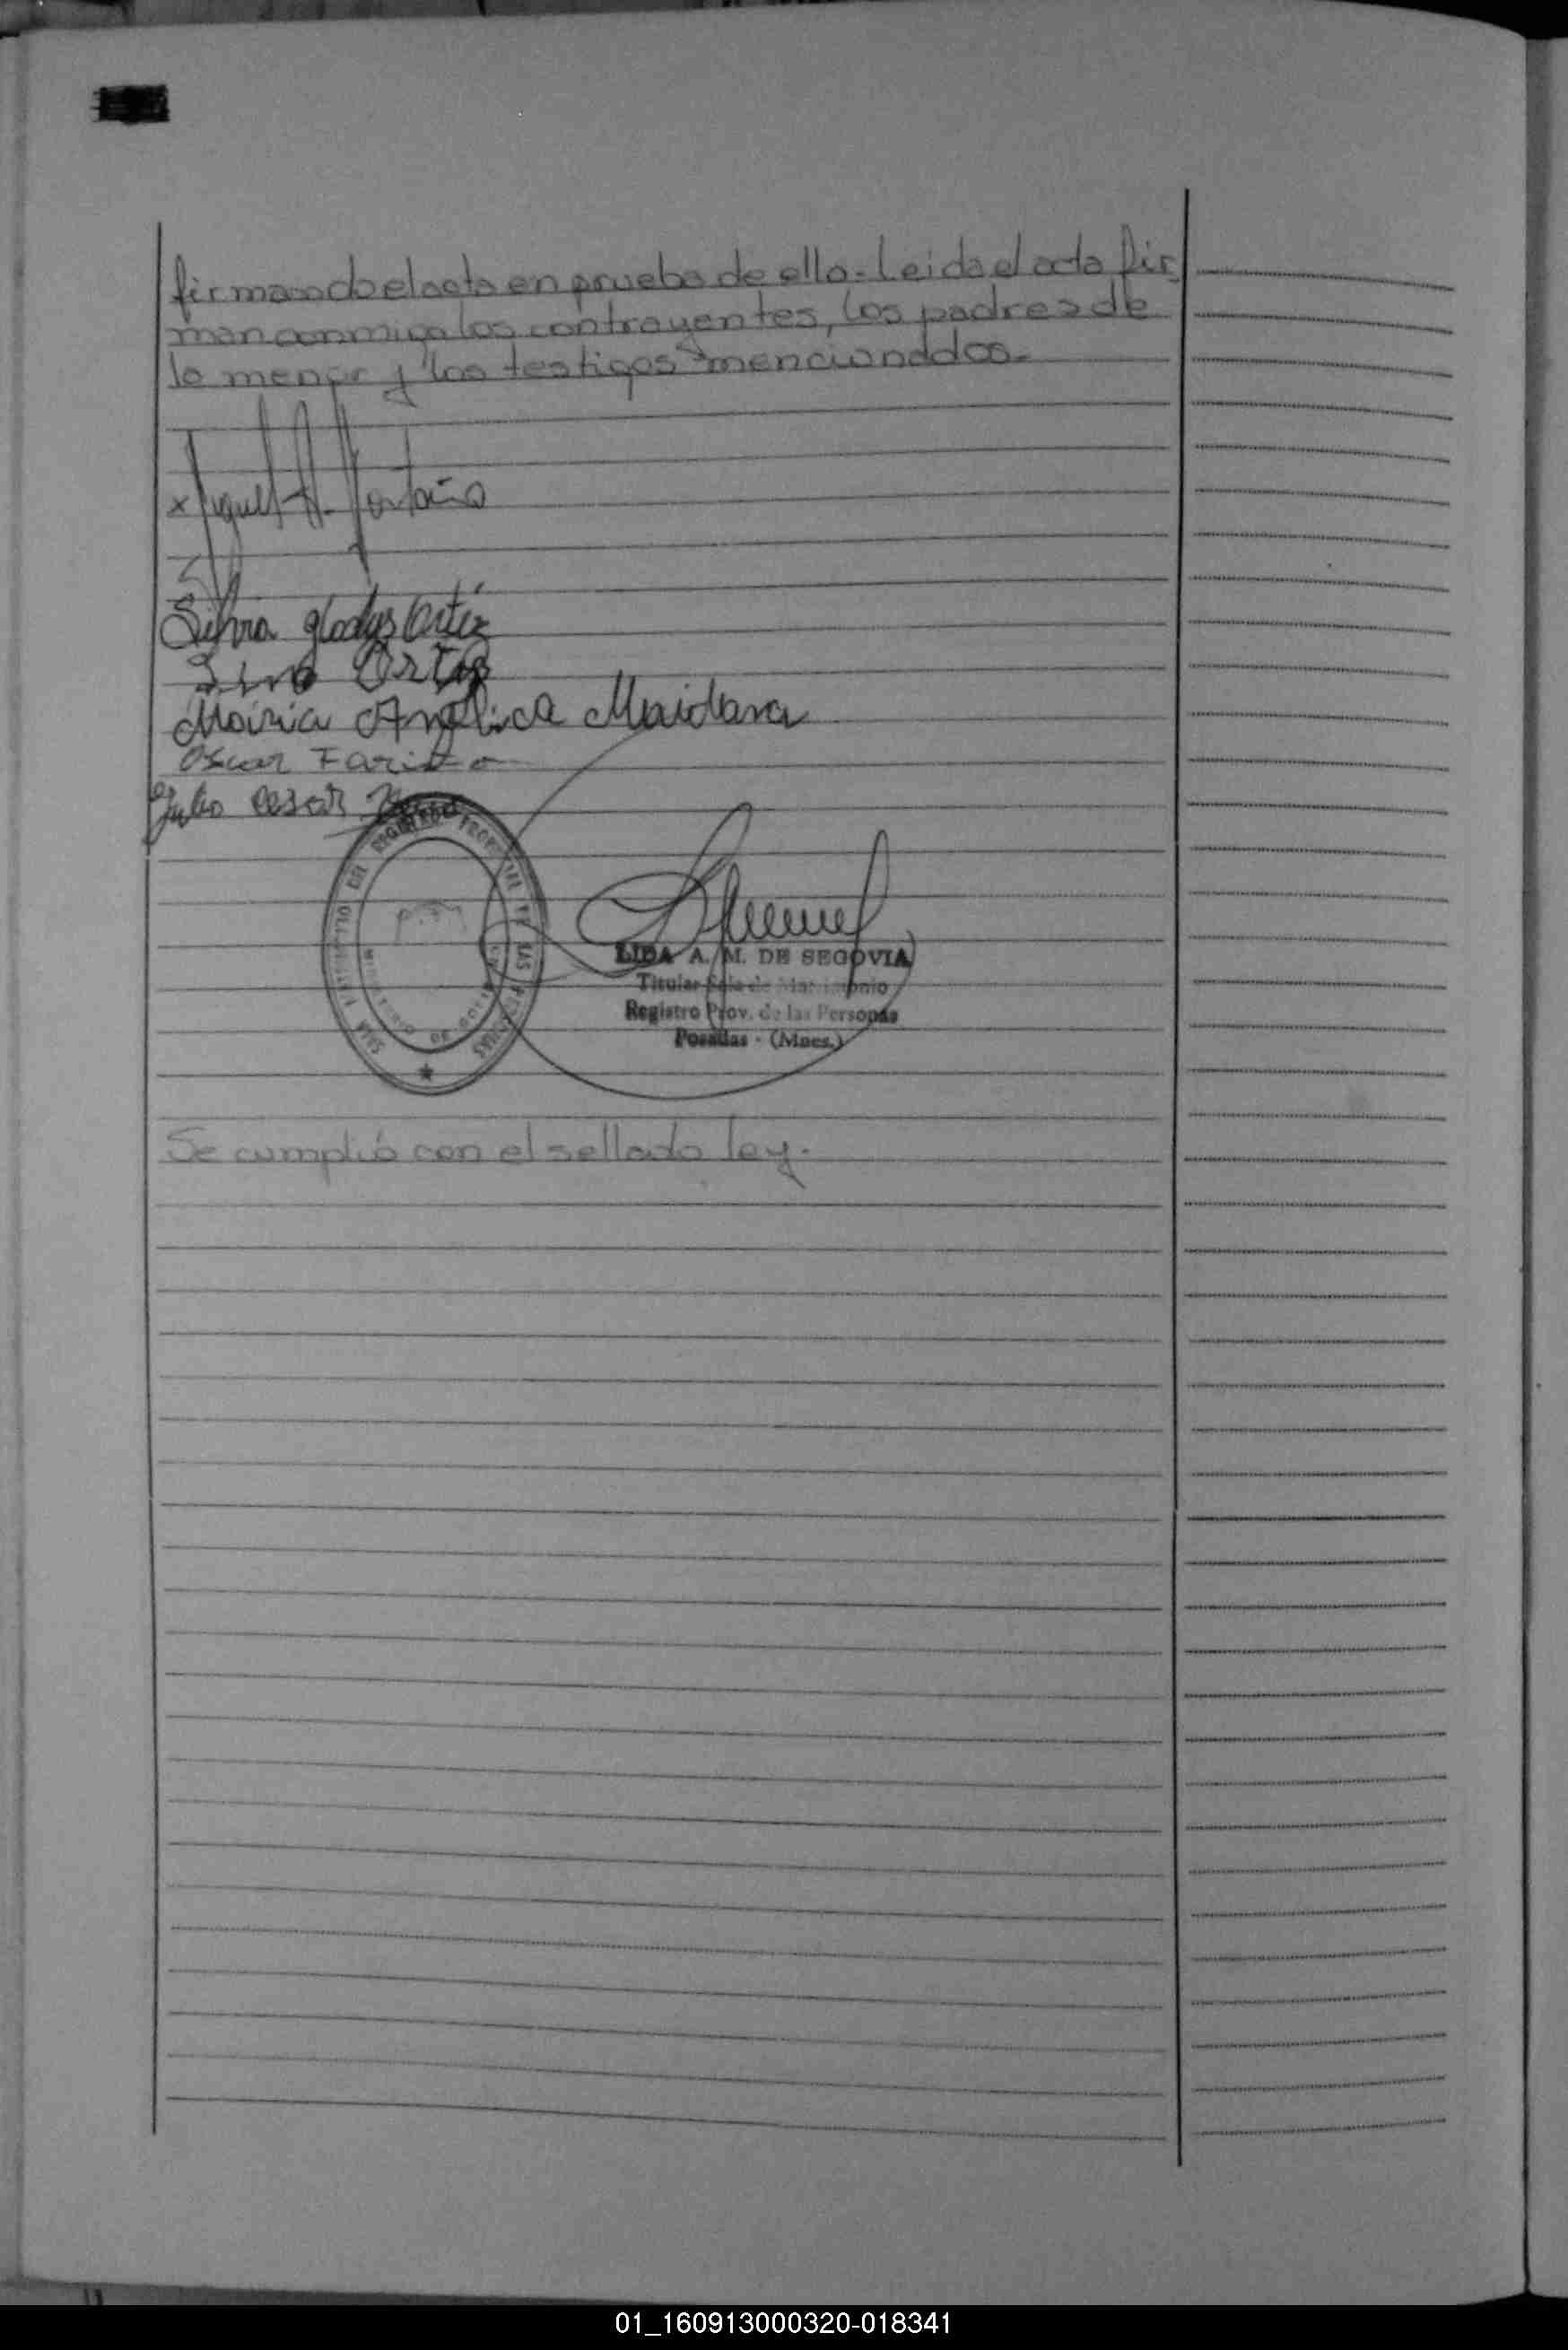 firmando el acta en prueba de ello.- Leida el acta fir-
man conmigo los contrayentes, los padres de
la menor y los testigos mencionaddos.-
x Miguel A. Montaño
Silvia Gladys Ortiz
Ortiz
Maria Angelica Maidana
Oscar Fariña
Julio Cesar
DEL REGISTRO PROVINCIAL DE LAS PERSONAS
MINISTERIO DE GOBIERNO
LIDA A. M. DE SEGOVIA
Titular Sala de Matrimonio
Registro Prov. de las Personas
Posadas - (Mnes.)
Se cumplió con el sellado ley.
01_160913000320-018341